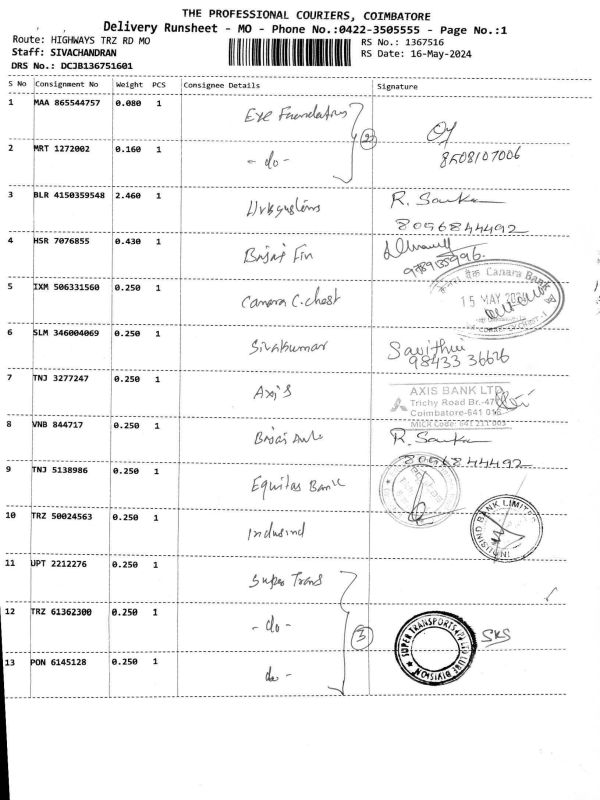 THE PROFESSIONAL COURIERS, COIMBATORE
Delivery Runsheet - MO - Phone No.:0422-3505555 - Page No.:1
Route: HIGHWAYS TRZ RD MO
RS No.: 1367516
Staff: SIVACHANDRAN
RS Date: 16-May-2024
DRS No.: DCJB136751601
S No Consignment No Weight PCS Consignee Details Signature
1 MAA 865544757 0.080 1 Eye Foundations
2
2 MRT 1272002 0.160 1 - do - 8508107006
3 BLR 4150359548 2.460 1 R. Sanka
8056844492
4 HSR 7076855 0.430 1 Bajaj Fin
9789135996
5 IXM 506331560 0.250 1 Canara C. chest
Canara Bank
15 MAY
6 SLM 346004069 0.250 1 Sivakumar Savithri
98433 36626
7 TNJ 3277247 0.250 1 Axis
AXIS BANK LTD
Trichy Road Br.
Coimbatore-641 015
MICR Code: 641 211 003
8 VNB 844717 0.250 1 Bajaj Auto R. Sanka
8056844492
9 TNJ 5138986 0.250 1 Equitas Bank
10 TRZ 50024563 0.250 1 Indusind
INDUSIND BANK LIMITED
11 UPT 2212276 0.250 1 Super Trans
12 TRZ 61362300 0.250 1 - do -
3
SUPER TRANSPORTS (P) LTD LUBE DIVISION
SKS
13 PON 6145128 0.250 1 do -